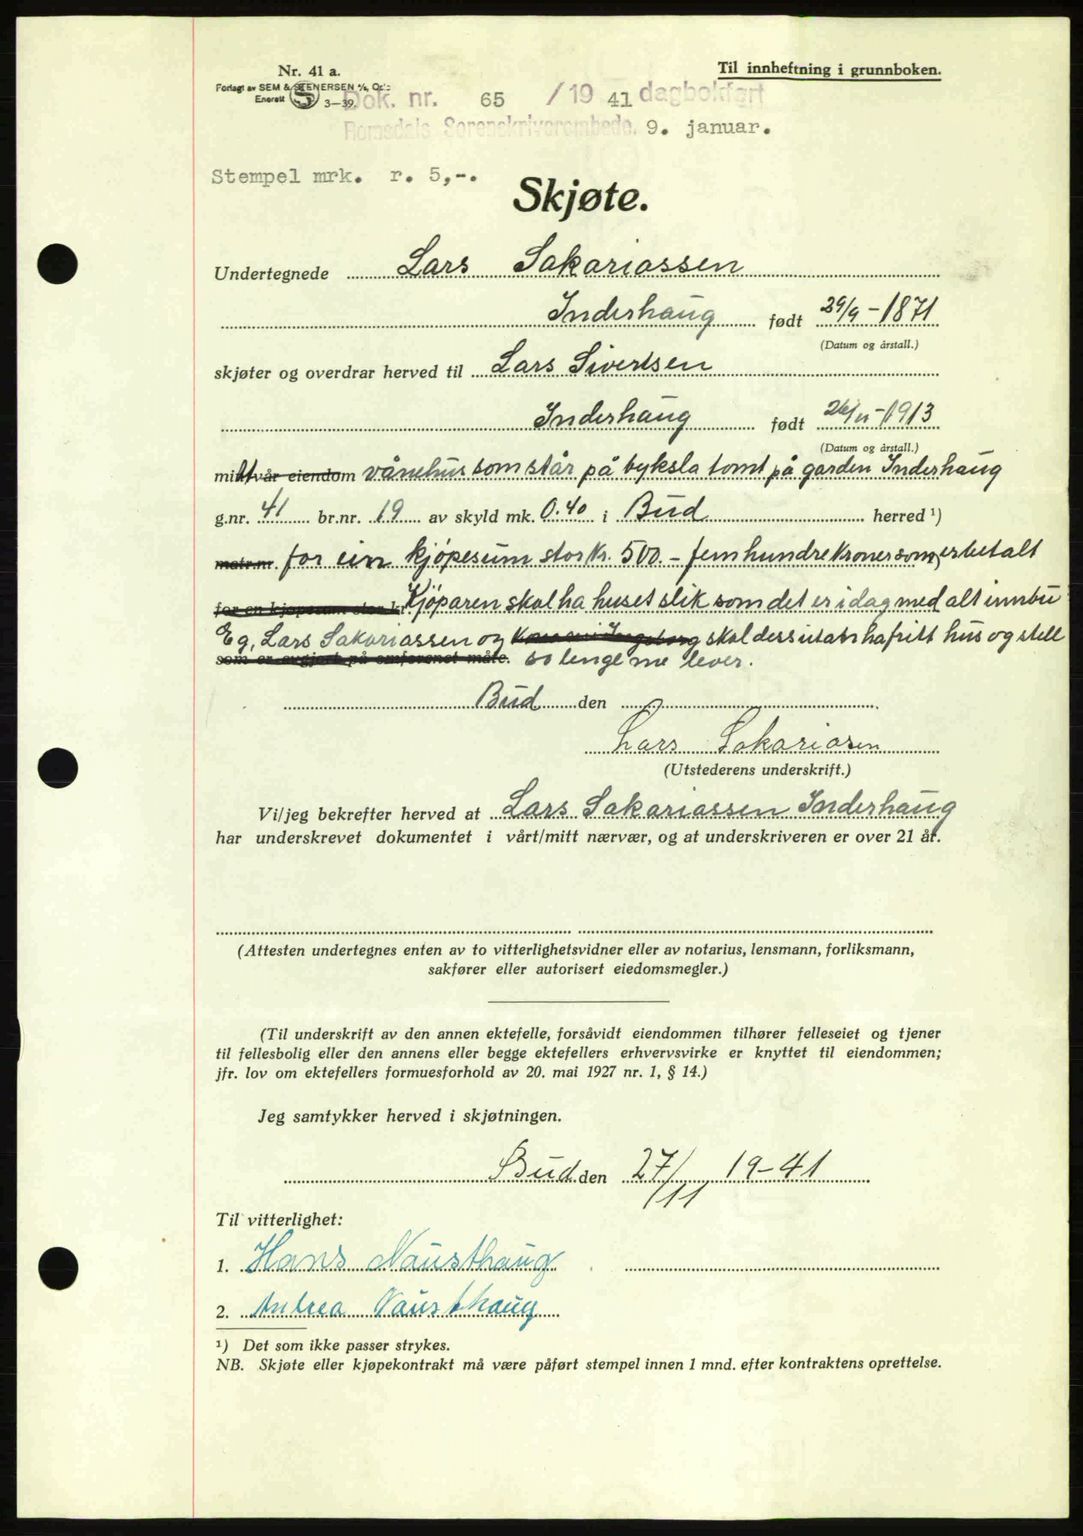 Til innheftning i grunnboken.
Nr. 41 a.
Forlagt av SEM & STENERSEN A/S, Oslo
Enerett S 3—39.
Dok. nr. 65 /19 41 dagbokført
Romsdals Sorenskriverembede. 9. januar.
Stempel mrk. r. 5,-.
Skjøte.
Undertegnede Lars Sakariassen
Inderhaug født 29/9-1871
(Datum og årstall.)
skjøter og overdrar herved til Lars Sivertsen
Inderhaug født 26/11-1913
(Datum og årstall.)
mitt vår eiendom vånehus som står på byksla tomt på garden Inderhaug
g.nr. 41 br.nr. 19 av skyld mk. 0.40 i Bud herred ¹)
matr.nr. for ein kjøpesum stor kr. 500.- femhundre kroner som er betalt
for en kjøpesum stor kr. Kjøparen skal ha huset slik som det er i dag med alt innbu
Eg, Lars Sakariassen og skal dessutan ha fritt hus og stell
som er avgjort på omforenet måte. so lenge me lever.
Bud den
Lars Sakariasen
(Utstederens underskrift.)
Vi/jeg bekrefter herved at Lars Sakariassen Inderhaug
har underskrevet dokumentet i vårt/mitt nærvær, og at underskriveren er over 21 år.
(Attesten undertegnes enten av to vitterlighetsvidner eller av notarius, lensmann, forliksmann,
sakfører eller autorisert eiedomsmegler.)
(Til underskrift av den annen ektefelle, forsåvidt eiendommen tilhører felleseiet og tjener
til fellesbolig eller den annens eller begge ektefellers erhvervsvirke er knyttet til eiendommen;
jfr. lov om ektefellers formuesforhold av 20. mai 1927 nr. 1, § 14.)
Jeg samtykker herved i skjøtningen.
Bud den 27/11 19-41
Til vitterlighet:
1. Hans Nausthaug
2. Antrea Nausthaug
¹) Det som ikke passer strykes.
NB. Skjøte eller kjøpekontrakt må være påført stempel innen 1 mnd. efter kontraktens oprettelse.